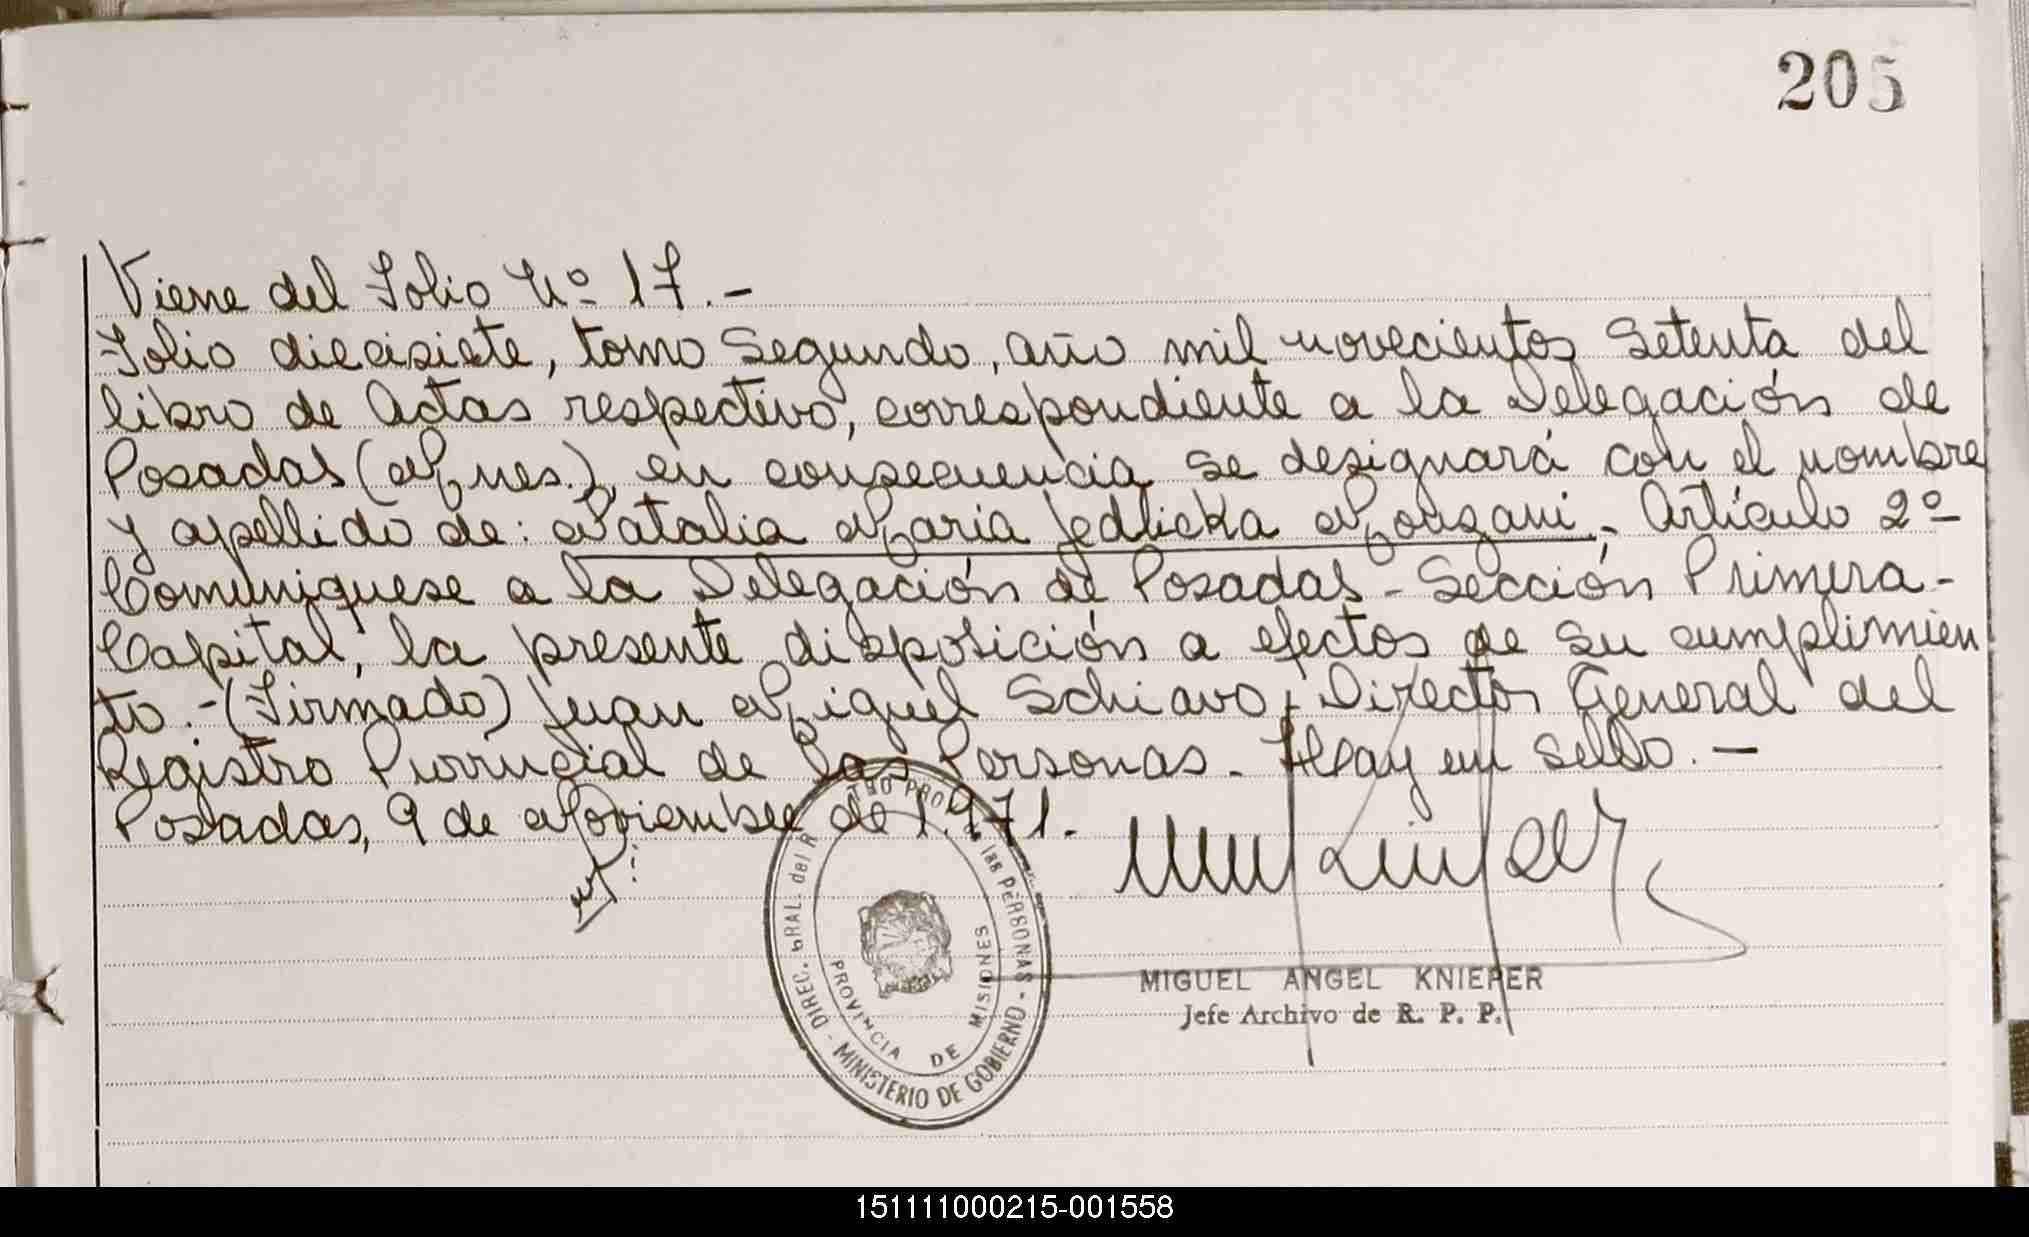 205
Viene del Folio Nº 17.-
Folio diecisiete, tomo Segundo, año mil novecientos setenta del
libro de Actas respectivo, correspondiente a la Delegación de
Posadas (Mnes.), en consecuencia se designará con el nombre
y apellido de: Natalia Maria Jedlicka Mongani.- Artículo 2º
Comuniquese a la Delegación de Posadas - Sección Primera -
Capital, la presente disposición a efectos de su cumplimien
to.- (Firmado) Juan Miguel Schiavo, Director General del
Registro Provincial de las Personas. Hay un sello.-
Posadas, 9 de Noviembre de 1.971.-
DIREC. GRAL. del R TRO PRO las PERSONAS - MINISTERIO DE GOBIERNO -
PROVINCIA DE MISIONES
MIGUEL ANGEL KNIEPER
Jefe Archivo de R. P. P.
151111000215-001558